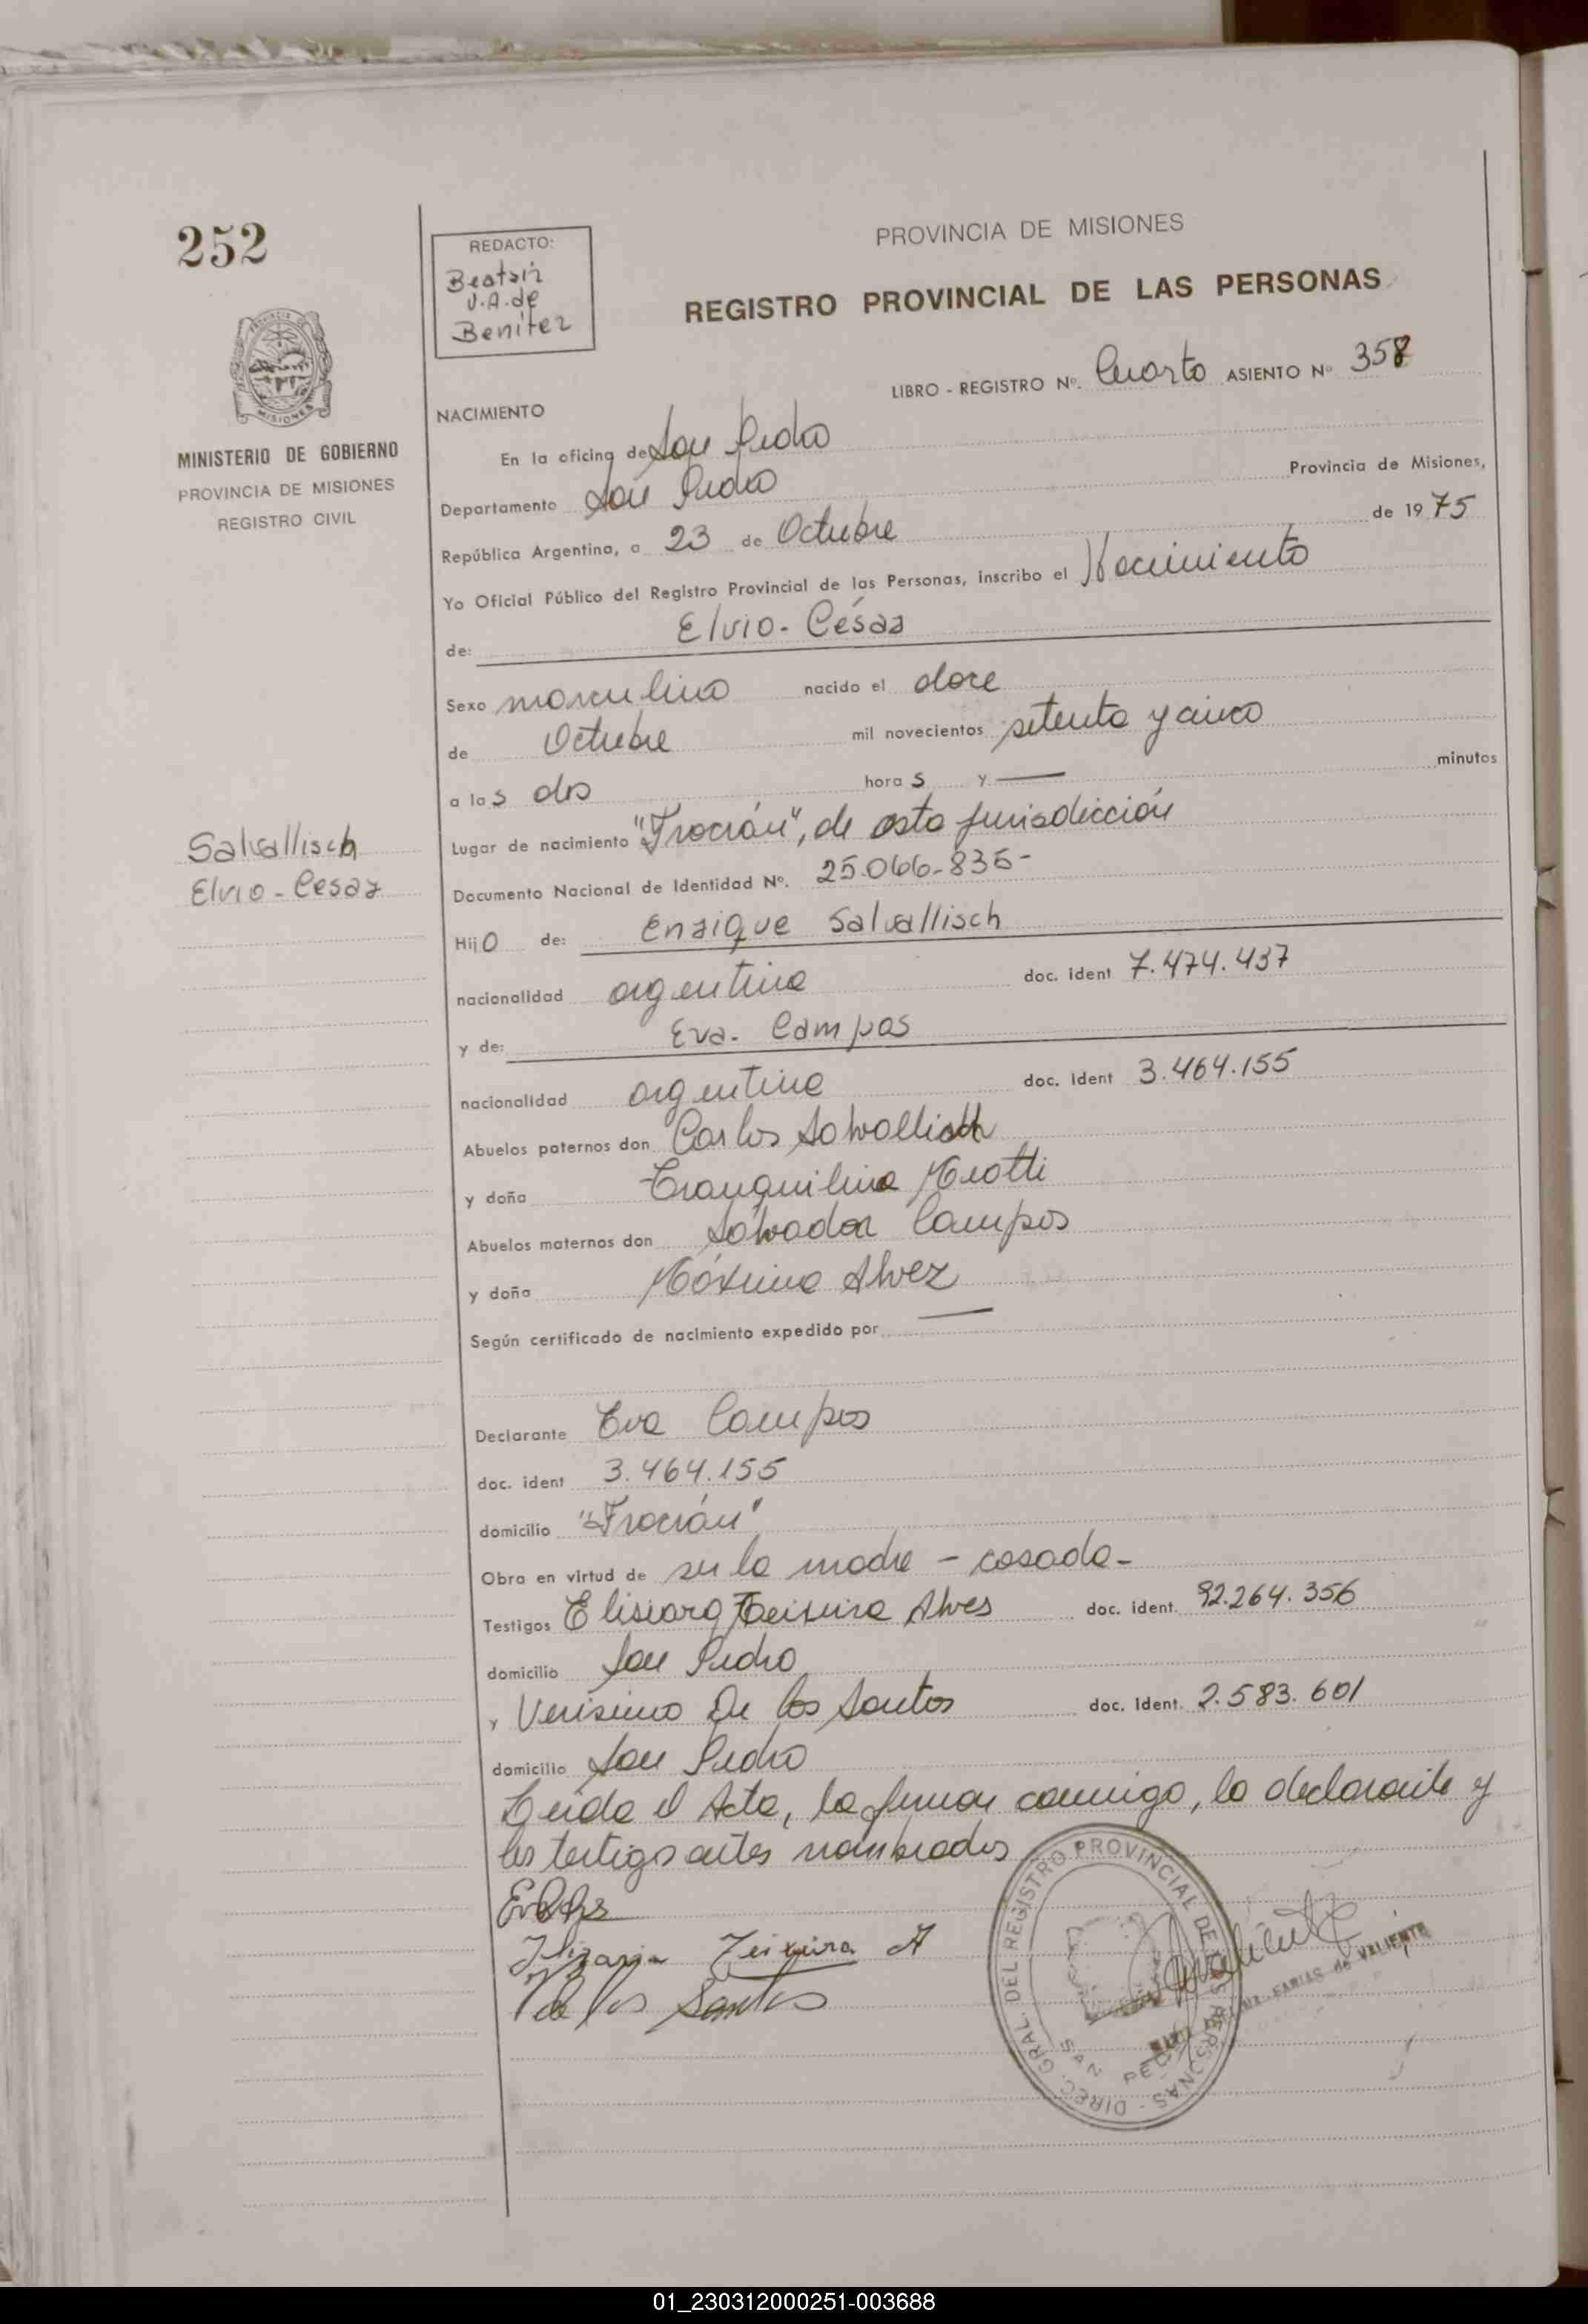 252
REDACTO:
Beatriz
V.A. de
Benítez
PROVINCIA DE MISIONES
REGISTRO PROVINCIAL DE LAS PERSONAS
LIBRO - REGISTRO Nº. Cuarto ASIENTO Nº 358
MINISTERIO DE GOBIERNO
PROVINCIA DE MISIONES
REGISTRO CIVIL
NACIMIENTO
En la oficina de San Pedro
Departamento San Pedro Provincia de Misiones,
República Argentina, a 23 de Octubre de 1975
Yo Oficial Público del Registro Provincial de las Personas, inscribo el Nacimiento
de: Elvio - César
Sexo masculino nacido el doce
de Octubre mil novecientos setenta y cinco
a las dos horas y — minutos
Salvallisch
Elvio - Cesar
Lugar de nacimiento "Fracrán", de esta jurisdicción
Documento Nacional de Identidad Nº. 25.066.835-
Hijo de: Enrique Salvallisch
nacionalidad argentina doc. ident 7.474.437
y de: Eva - Campos
nacionalidad argentina doc. ident 3.464.155
Abuelos paternos don Carlos Salvallisch
y doña Tranquilina Meotti
Abuelos maternos don Salvador Campos
y doña Máxima Alvez
Según certificado de nacimiento expedido por —
Declarante Eva Campos
doc. ident 3.464.155
domicilio "Fracrán"
Obra en virtud de ser la madre - casada -
Testigos Teixeira Alves doc. ident. 92.264.356
domicilio San Pedro
y Verisimo De los Santos doc. ident. 2.583.601
domicilio San Pedro
Leída el Acta, la firman conmigo, la declarante y
los testigos antes nombrados
Teixeira A
V de los Santos
DIREC. GRAL. DEL REGISTRO PROVINCIAL DE LAS PERSONAS -
SAN PEDRO
FARIAS de VALIENTE
01_230312000251-003688